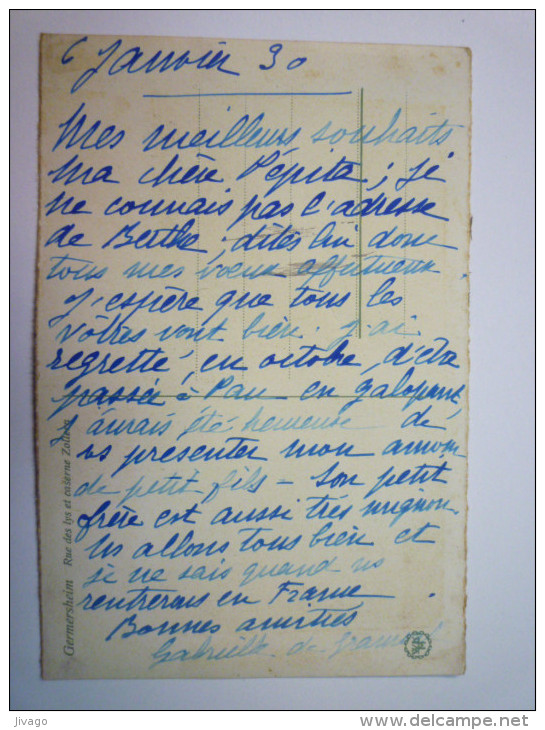 6 Janvier 30
Mes meilleurs souhaits
ma chère Pépita ; je
ne connais pas l'adresse
de Berthe ; dites lui donc
tous mes vœux affectueux.
J'espère que tous les
vôtres vont bien. J'ai
regretté, en octobre, d'être
passée à Pau en galopant,
j'aurais été heureuse de
vs présenter mon amour
de petit fils – Son petit
frère est aussi très mignon.
Ns allons tous bien et
je ne sais quand ns
rentrerons en France.
Bonnes amitiés
Gabrielle de
Germersheim Rue des lys et caserne Zoller
delcampe.net
Jivago